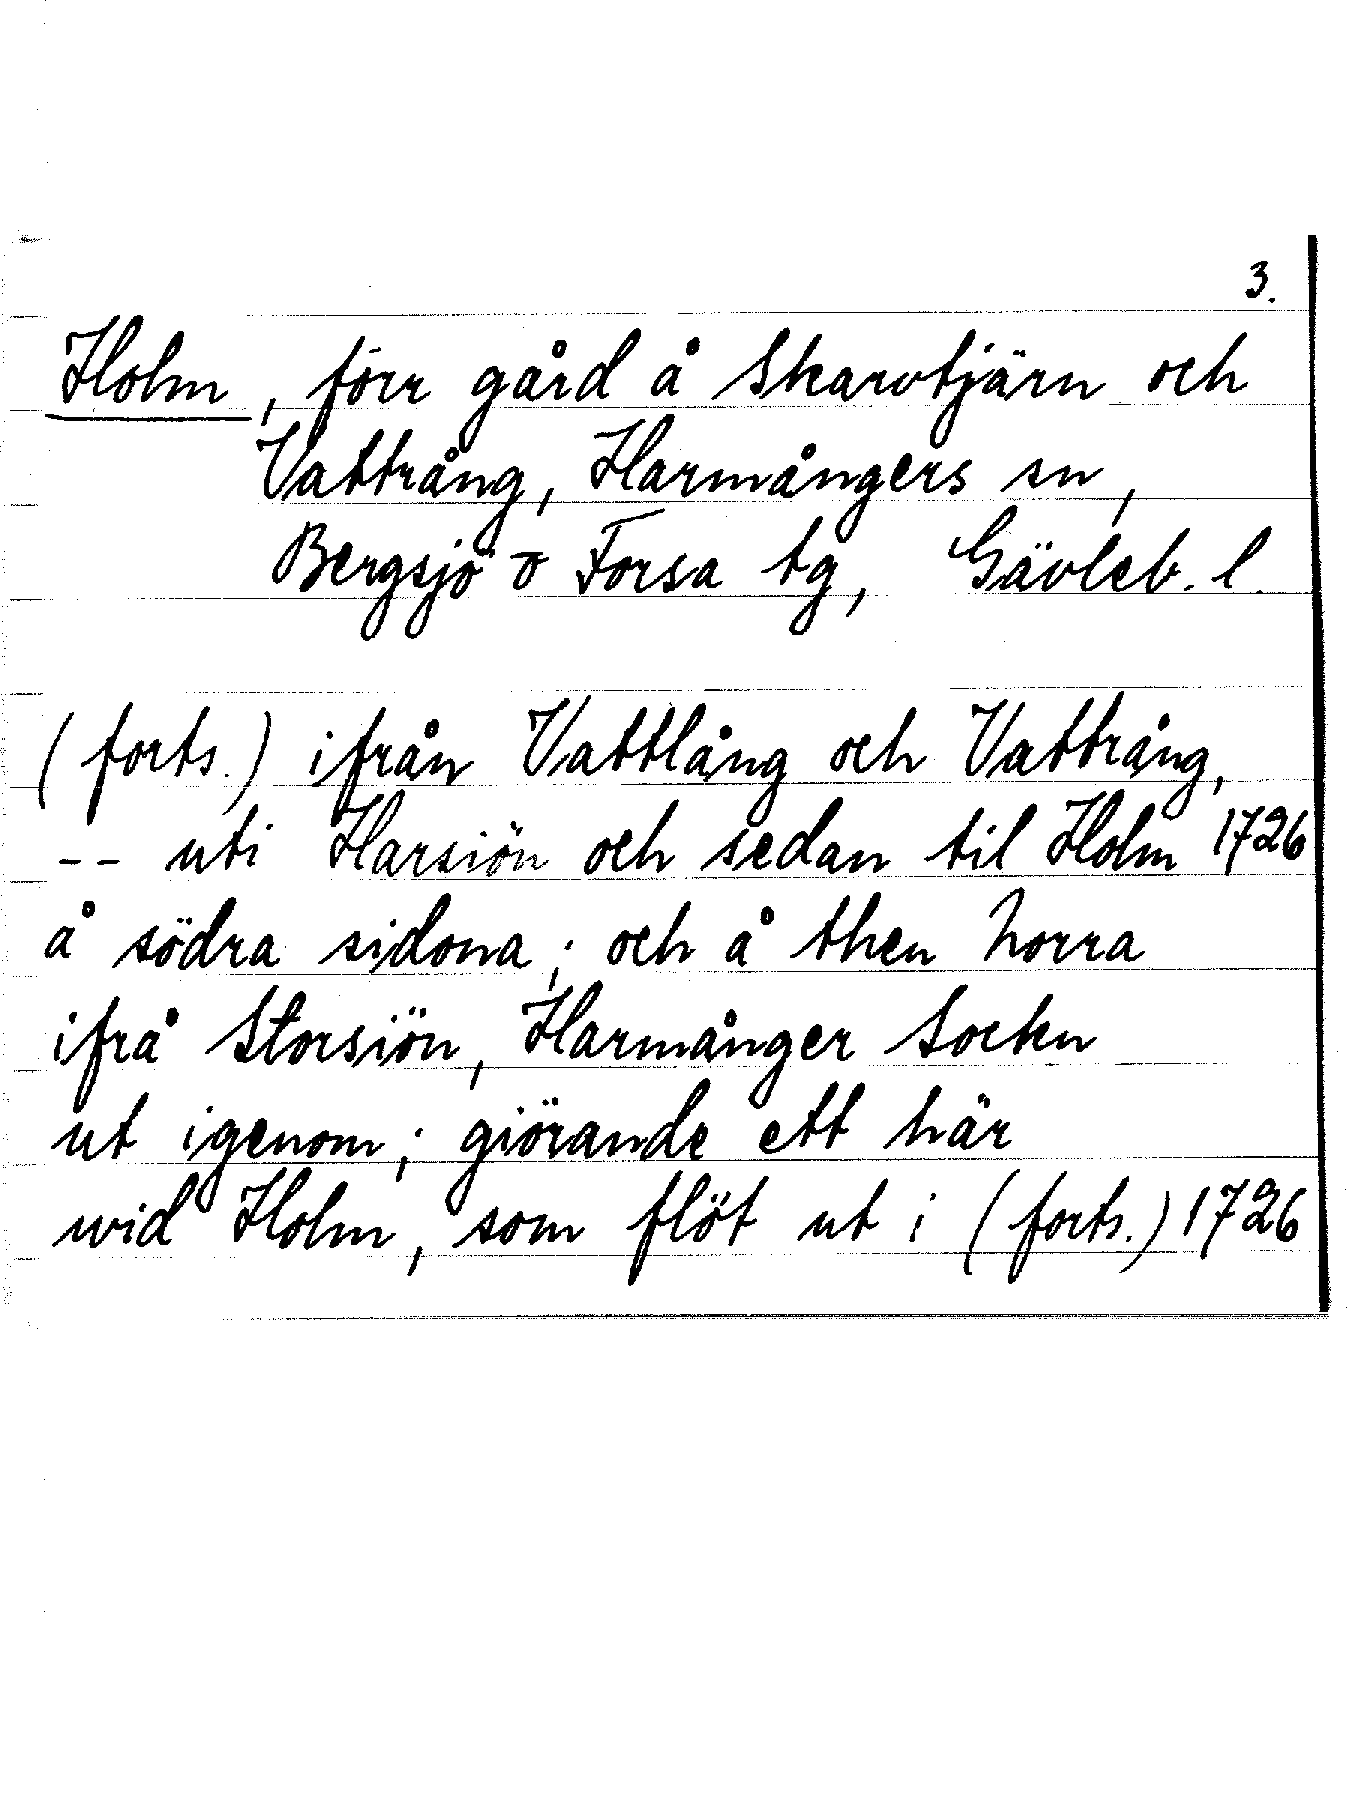 3.
Holm, förr gård å Skarvtjärn och
Vattrång, Harmångers sn,
Bergsjö o Forsa tg, Gävleb. l.
(forts.) ifrån Vattlång och Vattrång,
-- uti Harsiön och sedan til Holm 1726
å södra sidona; och å then Norra
ifrå Storsiön, Harmånger Sockn
ut igenom; giörande ett när
wid Holm, som flöt ut i (forts.) 1726